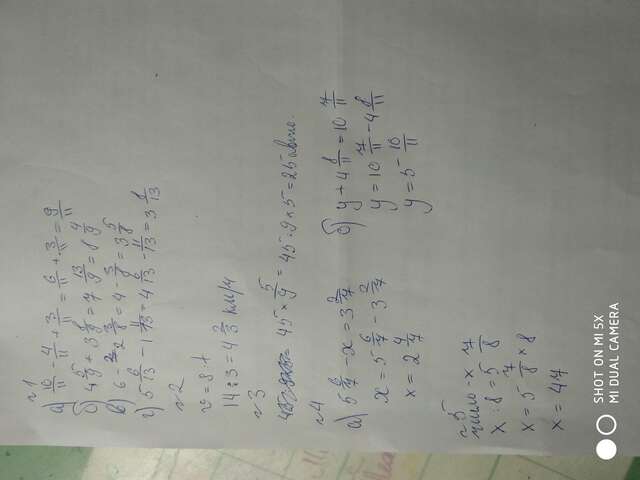 №1
а) 10/11 - 4/11 + 3/11 = 6/11 + 3/11 = 9/11
б) 4 5/9 + 3 8/9 = 7 13/9 = 8 4/9
в) 6 - 2 3/8 = 4 - 3/8 = 3 5/8
г) 5 6/13 - 1 11/13 = 4 6/13 - 11/13 = 3 8/13
№2
v = s : t
14 : 3 = 4 2/3 км/ч
№3
45 × 5/9 = 45 : 9 × 5 = 25 авто.
№4
а) 5 6/7 - x = 3 2/7
x = 5 6/7 - 3 2/7
x = 2 4/7
б) y + 4 8/11 = 10 7/11
y = 10 7/11 - 4 8/11
y = 5 10/11
№5
число - x
x : 8 = 5 7/8
x = 5 7/8 × 8
x = 47
SHOT ON MI 5X
MI DUAL CAMERA